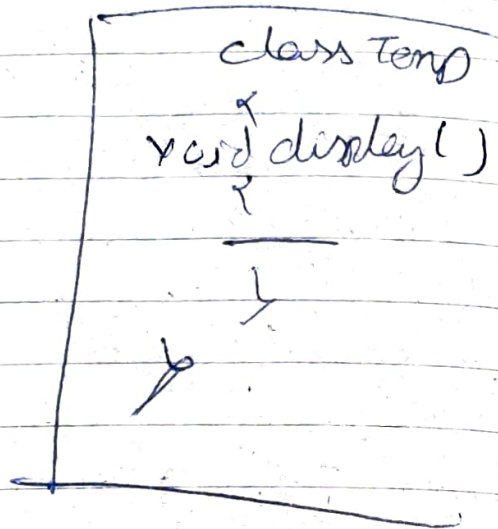 class Temp
{
void display()
{
}
}